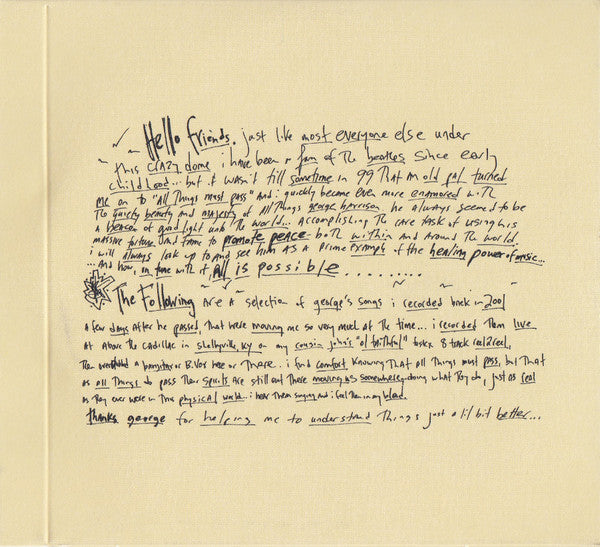 Hello friends. just like most everyone else under
this CRAZY dome i have been a fan of The beatles since early
childhood... but it wasn't till sometime in 99 that an old pal turned
me on to "All Things must pass" And i quickly became even more enamored with
The quiety beauty and majesty of All Things george harrison. he always seemed to be
a beacon of good light unto the world... accomplishing the rare task of using his
massive fortune and fame to promote peace both within and around the world.
i will always look up to and see him as a prime example of the healing power of music...
...And how, in tune with it, All is possible.........
The Following are a selection of george's songs i recorded back in 2001
a few days after he passed, that were moving me so very much at the time... i recorded them live
at above the cadillac in shelbyville, KY on my cousin john's "ol faithful" 8 track reel2reel,
Then a banjo or B.Vox here or There... i find comfort knowing that all Things must pass, but That
as all Things do pass Their spirits are still out There moving us somewhere, doing what They do, just as real
as They ever were in This physical world. i hear Them singing and i feel Them in my blood.
thanks george for helping me to understand Things just a lil bit better...